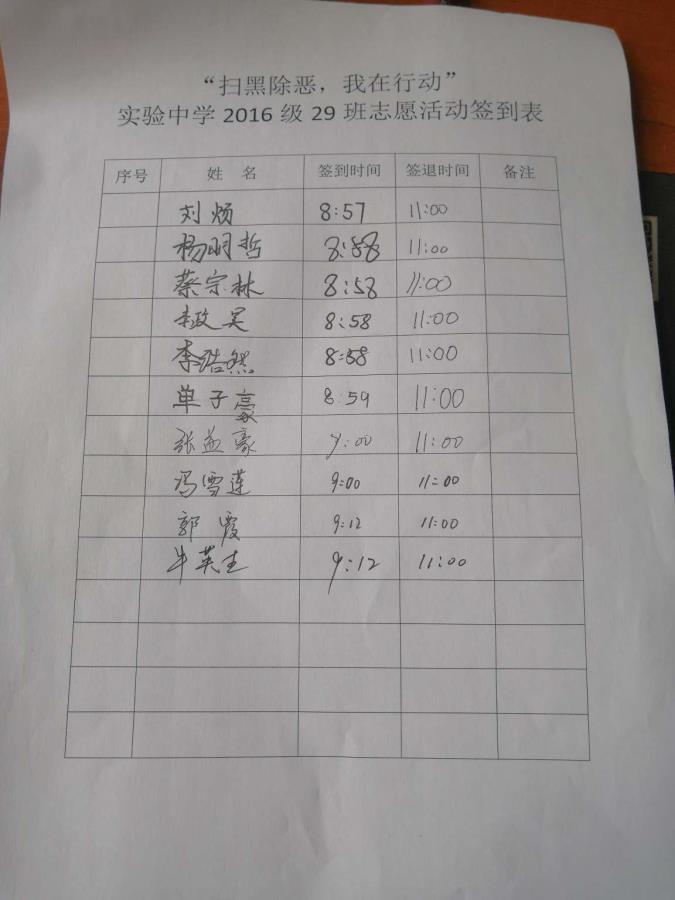 “扫黑除恶，我在行动”
实验中学 2016 级 29 班志愿活动签到表
序号 姓 名 签到时间 签退时间 备注
刘炳 8:57 11:00
杨明哲 8:58 11:00
蔡宗林 8:58 11:00
李政昊 8:58 11:00
李浩然 8:58 11:00
单子豪 8:59 11:00
张益豪 9:00 11:00
冯雪莲 9:00 11:00
郭霞 9:12 11:00
牛英 9:12 11:00